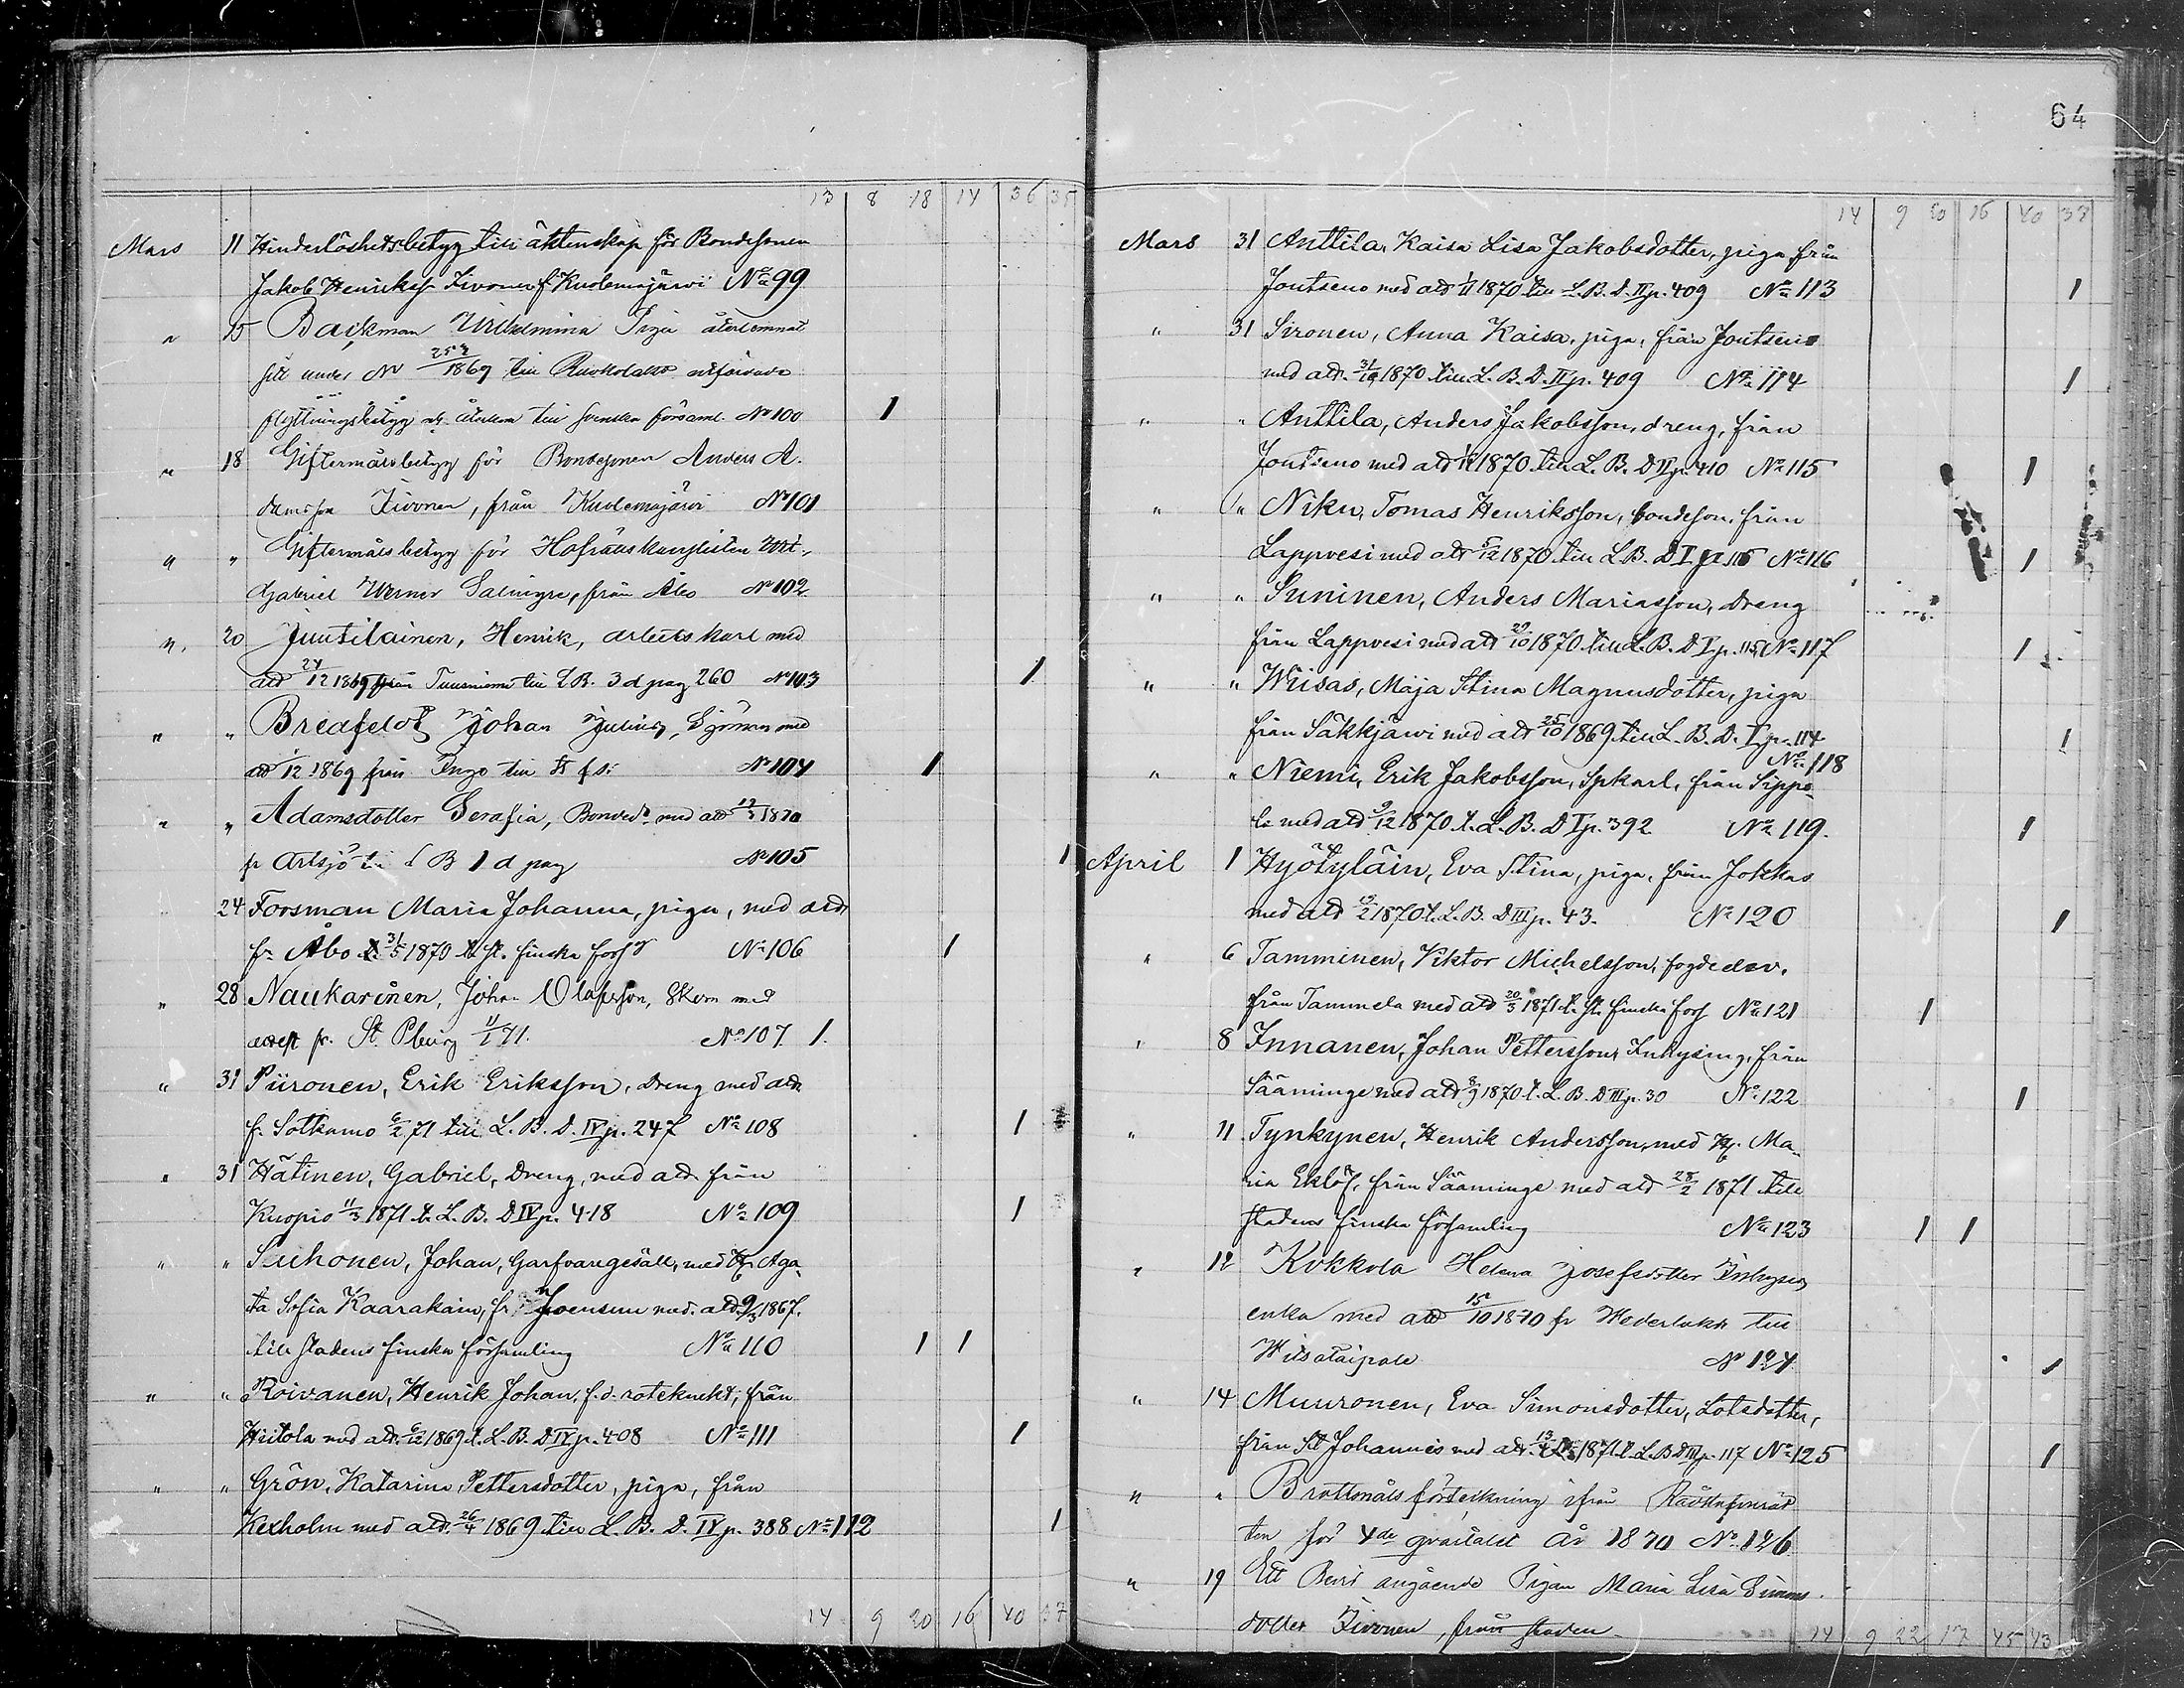 13 8 18 14 36 35
Mars 11 Hinderlöshetsbetyg till äktenskap för Bondesonen
Jakob Henriksson Zivonen f. Kuolemajärvi No 99
" 15 Backman Wilhelmina Piga återlemnat
sitt under No 257/1869 till Ruokolaks utfärdade
flyttningsbetyg återkom till Svenska församl. No 100
" 18 Giftermålsbetyg för Bondesonen Anders A.
damsson Zivonen, från Kuolemajärvi No 101
" " Giftermålsbetyg för Hofrättskanslisten
Gabriel Werner från Åbo No 102
" 20 Juutilainen, Henrik, arbetskarl med
att 24/12 1869 från till L.B. 3 d pag 260 No 103
" " Bredfeldt Johan Julius, Sjöman med
att 1/12 1869 från Ingo till No 104
" " Adamsdotter Serafia, Bonded. med att 19/3 1870
fr Artsjö till L B 1 d pag No 105
24 Forsman Maria Johanna, piga, med att
fr. Åbo 31/5 1870 t. st. finska förs No 106
" 28 Naukarinen, Johan Olafsson, med
attest fr. St. Pburg 71. No 107. 1.
" 31 Piironen, Erik Eriksson, dreng med att
f. Sotkamo 6/2 71 till L. B. D. IV p. 247 No 108
" 31 Hätinen, Gabriel, Dreng, med att från
Kuopio 11/3 1871 t. L. B. D IV p. 418 No 109
" " Suhonen, Johan, Garfvaregesäll, med H. Aga-
ta Sofia Kaarakain, fr. Joensuu med att 9/3 1867.
till stadens finska församling No 110
" " Roivanen, Henrik Johan, f.d. roteknekt, från
Hiitola med att 6/12 1869 t. L. B. D IV p. 408 No 111
" " Grön, Katarina Pettersdotter, piga, från
Kexholm med att 26/4 1869 till L. B. D. IV p. 388 No 112
14 9 20 16 40 37
64
14 9 20 16 40 37
Mars 31 Anttila, Kaisa Lisa Jakobsdotter, piga från
Joutseno med att 1/11 1870 till L. B. D. II p. 409 No 113
" 31 Sironen, Anna Kaisa, piga, från Joutseno
med att 1870 till L. B. D. II p. 409 No 114
" " Anttila, Anders Jakobsson, dreng, från
Joutseno med att 1870 till L. B. D II p. 410 No 115
" " Niku, Tomas Henriksson, bondeson, från
Lappvesi med att 5/12 1870 till L. B. D I p. 115 No 116
" " Suninen, Anders Mariasson, dreng
från Lappvesi med att 29/10 1870 till L. B. D I p. 115 No 117
" " Wiisas, Maja Stina Magnusdotter, piga
från Säkkjärvi med att 25/10 1869 till L. B. D. I p. 114
No 118
" " Niemi, Erik Jakobsson, Spkarl, från Sippo-
la med att 9/12 1870 t. L. B. D I p. 392 No 119.
April 1 Hyötyläin, Eva Stina, piga, från Jokkas
med att 9/2 1870 t. L. B. D III p. 43. No 120
" 6 Tamminen, Viktor Michelsson, fogdedr.
från Tammela med att 20/3 1871 t. st. finska förs No 121
" 8 Innanen, Johan Pettersson, Inhysing, från
Sääminge med att 8/9 1870 t. L. B. D III p. 30 No 122
" 11 Tynkynen, Henrik Andersson, med H. Ma-
ria Eklöf, från Sääminge med att 28/2 1871 till
stadens finska församling No 123
" 12 Kokkola Helena Josefsdotter Inhyses
enka med att 15/10 1870 fr Hederlaks till
Witsataipale No 124
" 14 Muuronen, Eva Simonsdotter, Lotsdotter,
från St Johannis med att 1871 t. L. B D III p. 117 No 125
" " Brottmålsförteckning ifrån Rådstufvurät
ten för 4de qvartalet År 1870 No 126
" 19 Ett Bevis angående Pigan Maria Lisa Simons
dotter Zivonen, från staden
14 9 22 17 45 43